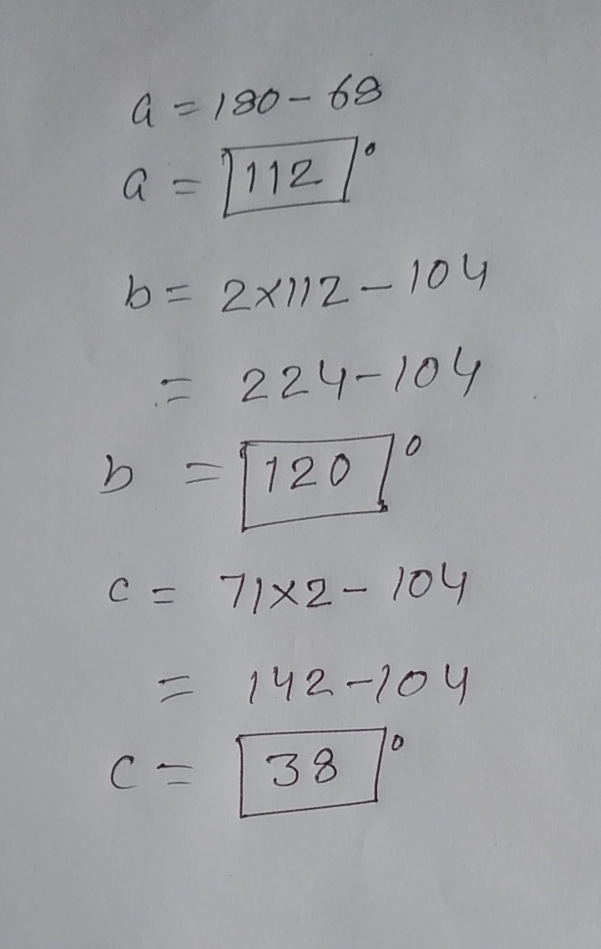 a = 180 - 68
a = 112°
b = 2×112 - 104
= 224 - 104
b = 120°
c = 71×2 - 104
= 142 - 104
c = 38°